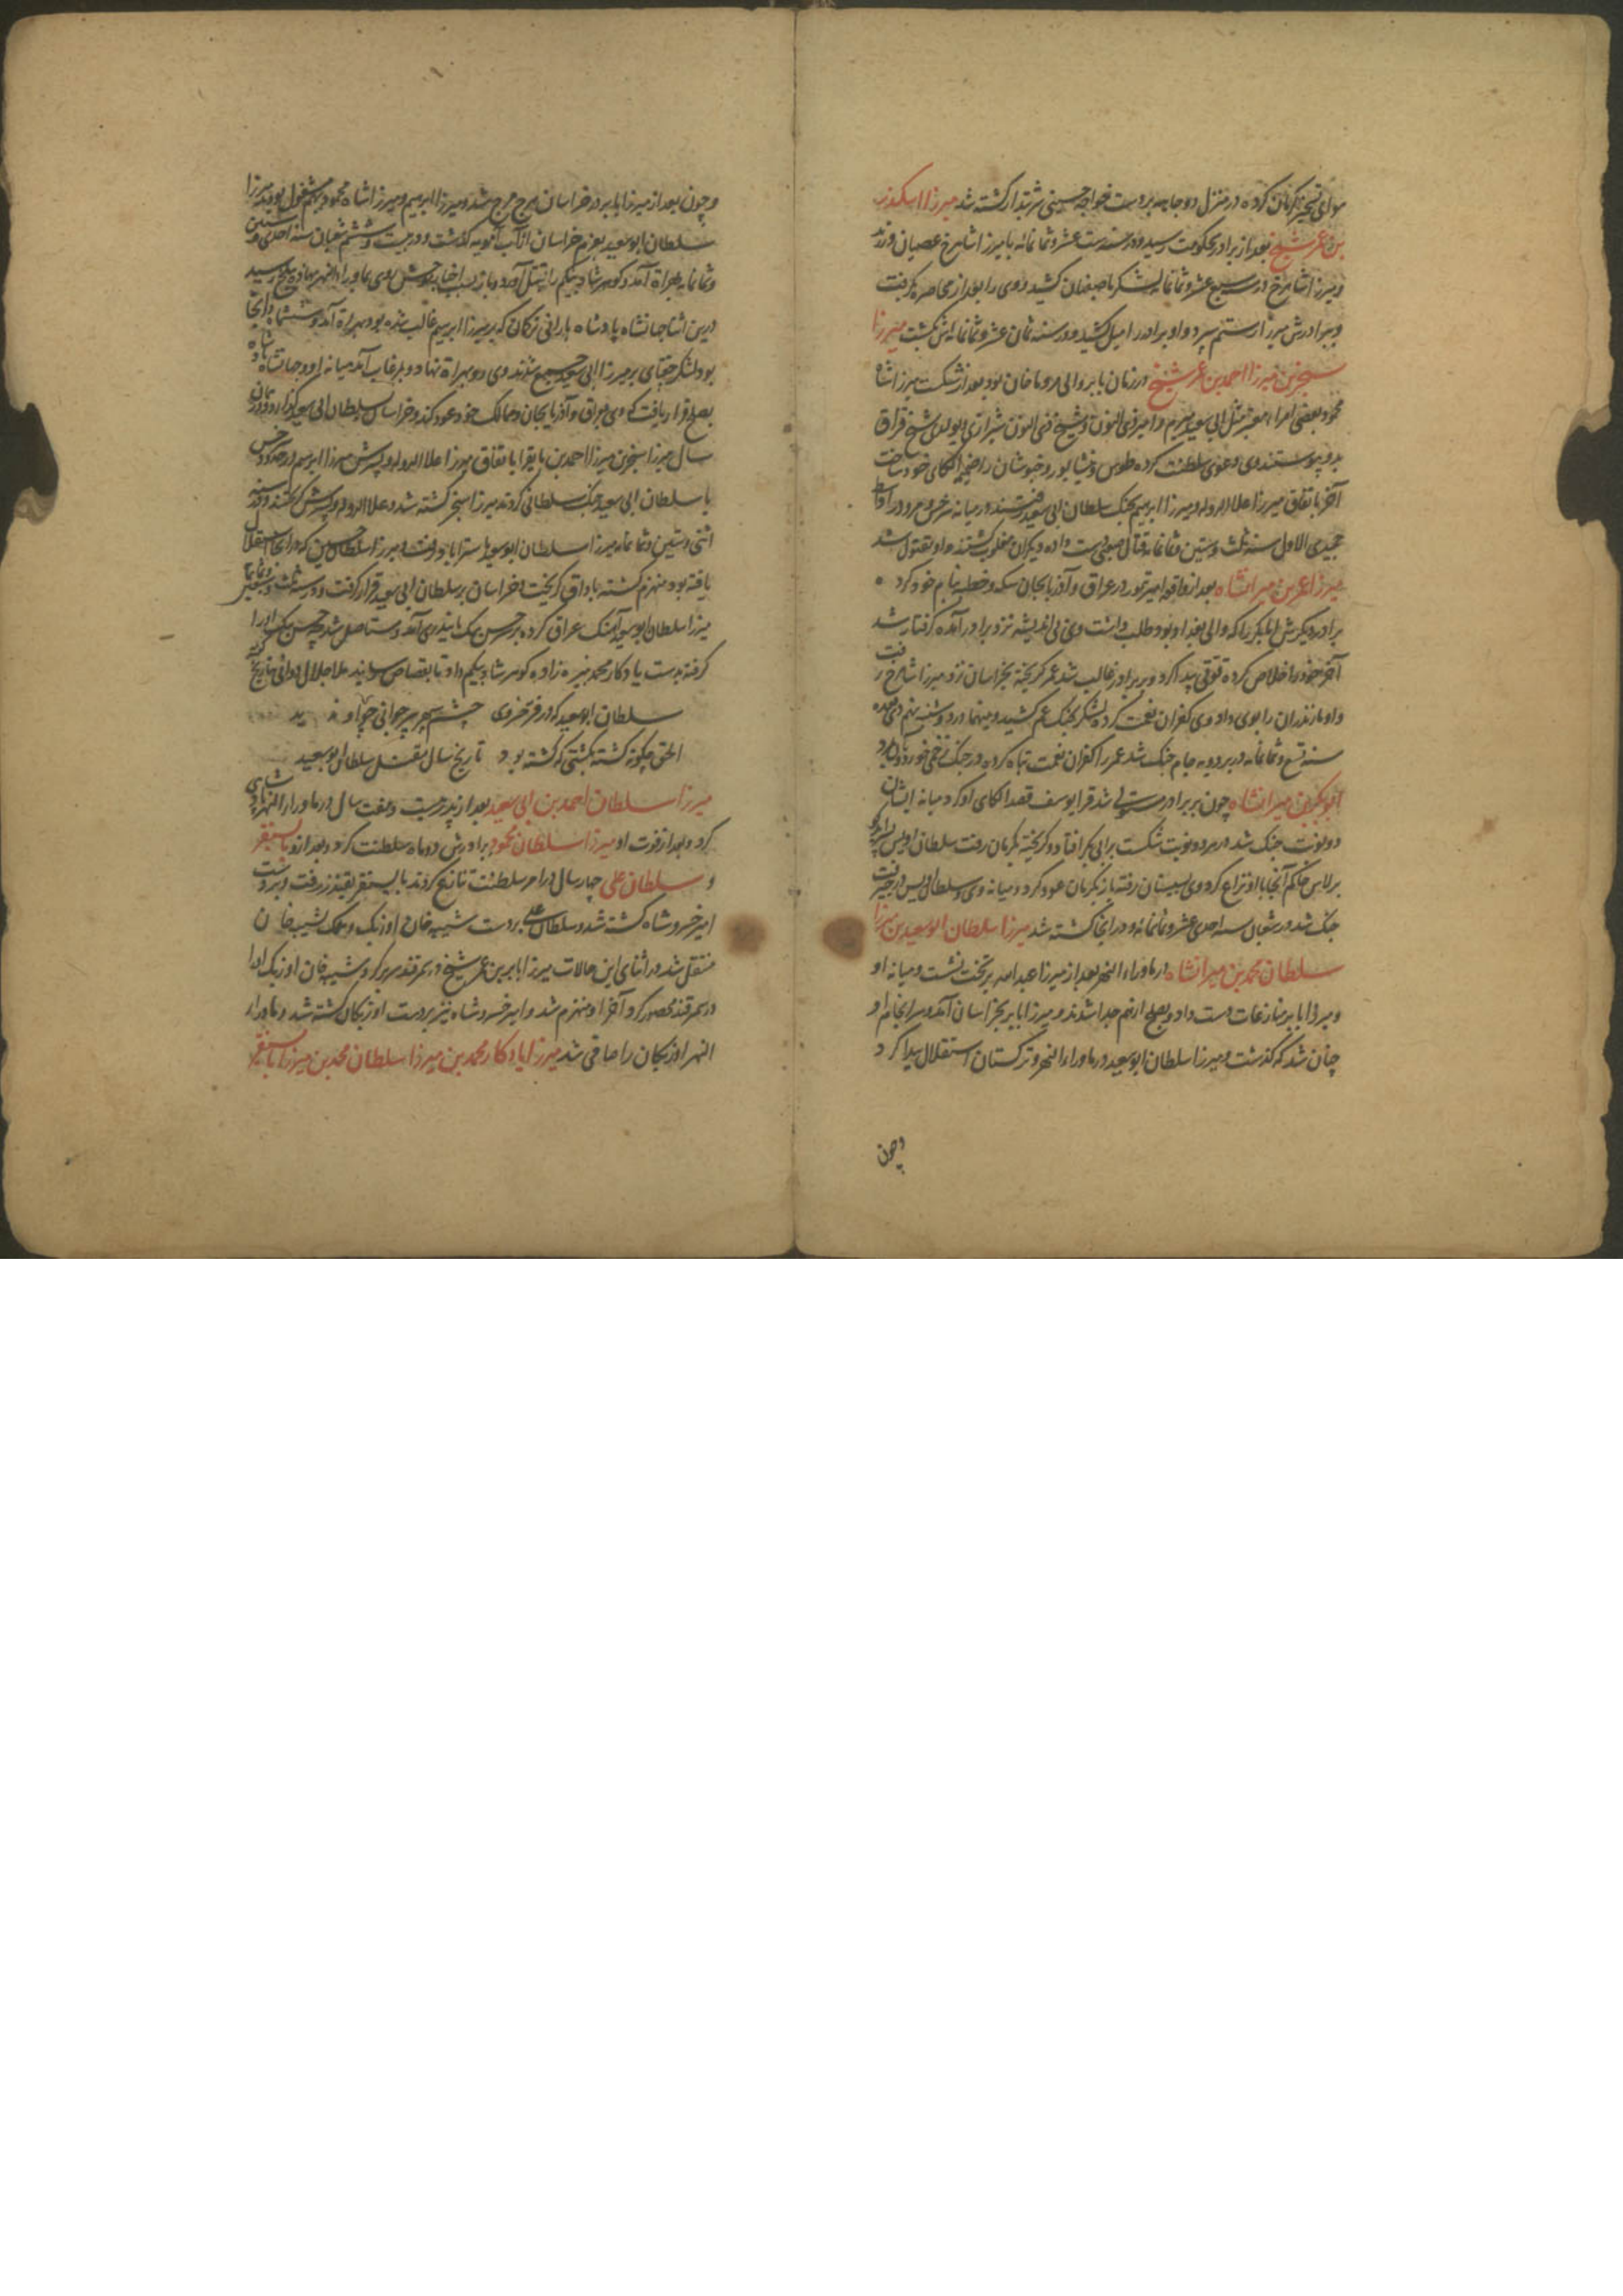 هوای تسخیر کرمان کرده در منزل دوجابه بر دست خواجه حسینی شربتدار کشته شد میرزا اسکندر
بن عمر شیخ بعد از برادر بحکومت رسید و در سنه ست عشر و ثمانمائه با میرزا شاهرخ عصیان ورزید
و میرزا شاهرخ در سبع عشر و ثمانمائه لشکر باصفهان کشید و وی را بعد از محاصره بگرفت
و ببرادرش میرزا رستم سپرد و او برادر را میل کشید و در سنه ثمان عشر و ثمانمائه بکشت میرزا
سنجر بن میرزا احمد بن عمر شیخ در زمان بابر والی مرو ماخان بود بعد از شکست میرزا شاه
محمود بعضی امراء معتبر مثل ابی سعید میرم و امیر ذی النون و شیخ ذی النون شیرازی
بدو پیوستند وی دعوی سلطنت کرده طوس و نیشابور و خبوشان را ضمیمه الکای خود ساخت
آخر باتفاق میرزا علاالدوله و میرزا ابرهیم بجنگ سلطان ابی سعید رفتند و در میانه سرخس و مرو در اواسط
جمیدی الاول سنه ثلث و ستین و ثمانمائه قتال صعب دست داده دیگران مغلوب گشتند و او مقتول شد
میرزا عمر بن میرانشاه بعد از واقعه امیر تیمور در عراق و آذربایجان سکه و خطبه بنام خود کرد
برادر دیگرش ابابکر را که والی بغداد بود طلب داشت وی بی اندیشه نزد برادر آمده گرفتار شد
آخر خود را خلاص کرده قوتی پیدا کرد و بر برادر غالب شد عمر گریخته بخراسان نزد میرزا شاهرخ رفت
و او مازندران را بوی داد وی کفران نعمت کرده لشکر بجنگ عم کشید و مهما در دوشنبه نهم ذی قعده
سنه تسع و ثمانمائه در بردویه جام جنگ شد عمر را کفران نعمت تباه کرده در جنگ زخمی خورد
ابوبکر بن میرانشاه چون بر برادر مستولی شد قرا یوسف قصد الکای او کرد میانه ایشان
دو نوبت جنگ شد در هر دو نوبت شکست بر ابی بکر افتاد و گریخته بکرمان رفت سلطان اویس
برلاس حاکم آنجا با او نزاع کرد وی بسیستان رفته باز بکرمان عود کرد و میانه وی و سلطان اویس در جیرفت
جنگ شد در شعبان سنه احدی عشر و ثمانمائه و در آنجا کشته شد میرزا سلطان ابو سعید بن میرزا
سلطان محمد بن میرانشاه در ماوراء النهر بعد از میرزا عبد الله بر تخت نشست و میانه او
و میرزا بابر منازعات دست داد و بصلح از هم جدا شدند و میرزا بابر بخراسان آمد و سرانجام او
چنان شد که گذشت و میرزا سلطان ابو سعید در ماوراءالنهر و ترکستان استقلال پیدا کرد
وچون
و چون بعد از میرزا بابر در خراسان هرج مرج شد و میرزا ابرهیم و میرزا شاه محمود بهم مشغول بودند میرزا
سلطان ابو سعید بعزم خراسان از آب آمویه گذشت و در بیست و ششم شعبان سنه احدی و ستین
و ثمانمائه بهراة آمد و گوهرشاد بیگم را بقتل آورد و باز بسبب اخبار موحش بسوی ماوراءالنهر نهاده ببلخ رسید
درین اثنا جهانشاه پادشاه بارانی ترکمان که بر میرزا ابرهیم غالب شده بود بهراة آمد و ششماه در آنجا
بود لشکر جغتای بر میرزا ابی سعید جمع شدند وی رو بهراة نهاد و بر مرغاب آمد میانه او و جهانشاه
بصلح قرار یافت که وی بعراق و آذربایجان و ممالک خود عود کند و خراسان بسلطان ابی سعید گذارد و در همان
سال میرزا سنجر بن میرزا احمد بن بایقرا باتفاق میرزا علاالدوله و پسرش میرزا ابرهیم در حدود سرخس
با سلطان ابی سعید جنگ سلطانی کردند میرزا سنجر کشته شد و علاالدوله و پسرش گریختند و در سنه
اثنی و ستین و ثمانمائه میرزا سلطان ابو سعید باستراباد رفت و میرزا سلطان حسین که در آنجا استقلال
یافته بود منهزم گشته باداق گریخت و خراسان بر سلطان ابی سعید قرار گرفت و در سنه ثلث و سبعین و ثمانمائه
میرزا سلطان ابو سعید آهنگ عراق کرده بر سر حسن بیک بایندری آمد و مستاصل شد حسن بیک او را
گرفته بدست یادگار محمد نبیره زاده گوهرشاد بیگم داد تا بقصاص رسانید ملا جلال دوانی تاریخ گوید
سلطان ابوسعید که در فر خسروی چشم سپهر پیر جوانی چو او ندید
الحق چگونه گشته نگشتی که گشته بود تاریخ سال مقتل سلطان ابو سعید
میرزا سلطان احمد بن ابی سعید بعد از پدر بیست و هفت سال در ماوراء النهر پادشاهی
کرد و بعد از فوت او میرزا سلطان محمود برادرش دو ماه سلطنت کرد و بعد ازو بایسنقر
و سلطان علی چهار سال در امر سلطنت تنازع کردند بایسنقر بقندز رفت و بر دست
امیر خسروشاه کشته شد و سلطان علی بر دست شیبه خان اوزبک و ملک بشیبه خان
منتقل شد در اثنای این حالات میرزا بابر بن عمر شیخ در سمرقند سر بر کرد و شیبه خان اوزبک او را
در سمرقند محصور کرد آخر او منهزم شد و امیر خسروشاه نیز بر دست اوزبکان کشته شد و ماوراء
النهر اوزبکان را صافی شد میرزا یادکار محمد بن میرزا سلطان محمد بن میرزا بایسنقر